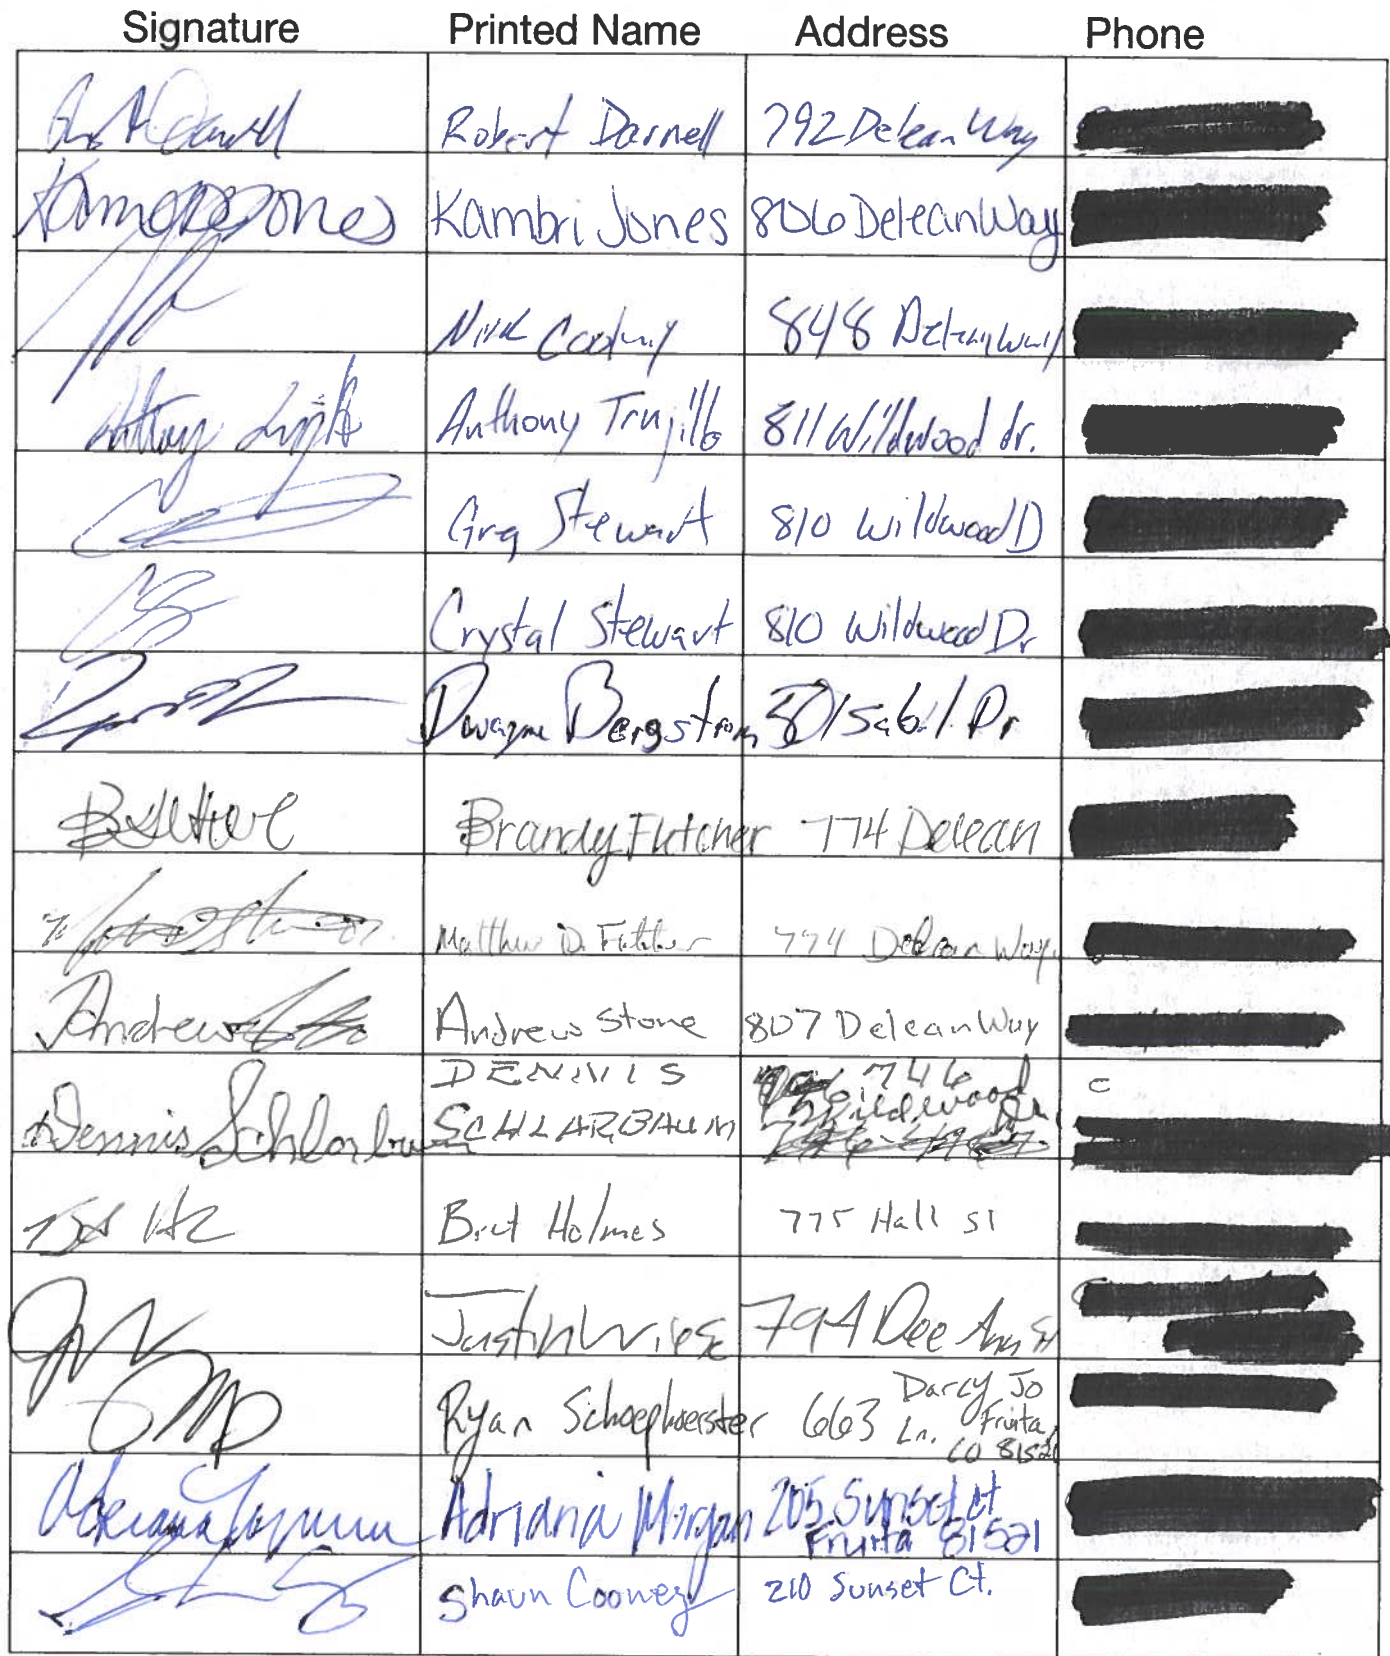 Signature Printed Name Address Phone
Robert Darnell 792 Delean Way
Kambri Jones Kambri Jones 806 Delean Way
Nick 848 Delean Way
Anthony Trujillo 811 Wildwood dr.
Greg Stewart 810 Wildwood D
Crystal Stewart 810 Wildwood Dr
Dwayne Bergstrom 801 Sabil Dr
Brandy Futcher 774 Delean
Matthew D. Futcher 774 Delean Way
Andrew Andrew Stone 807 Delean Way
DENNIS 746
Dennis Schlarbaum SCHLARBAUM Wildwood Dr.
Bret Holmes 775 Hall st
Justin Wiese 794 Dee Ann St
Ryan Schoephoerster 663 Darcy Jo
Ln. Fruita
CO 81521
Adriana Morgan 205 Sunset ct
Fruita 81521
Shaun Cooney 210 Sunset Ct.